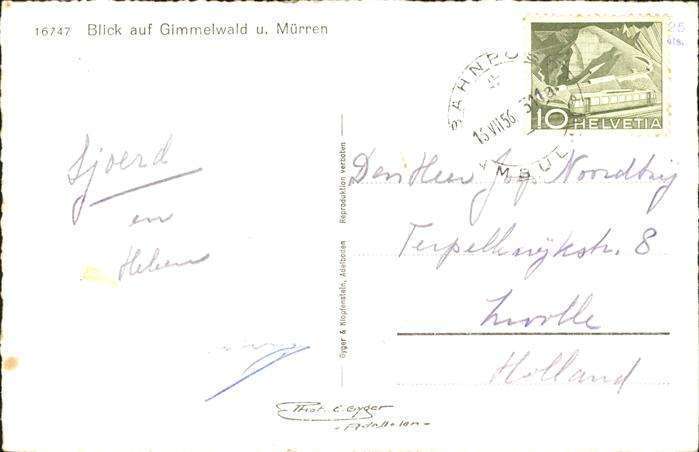 16747 Blick auf Gimmelwald u. Mürren
25
10 HELVETIA
BAHNPO
15 VII 56
AMBUL
Sjoerd
en
Heleen
Gyger & Klopfenstein, Adelboden Reproduktion verboten
Den Heer Jop Noordbrug
str. 8
Zwolle
Holland
Phot. E. Gyger
- Adelboden -